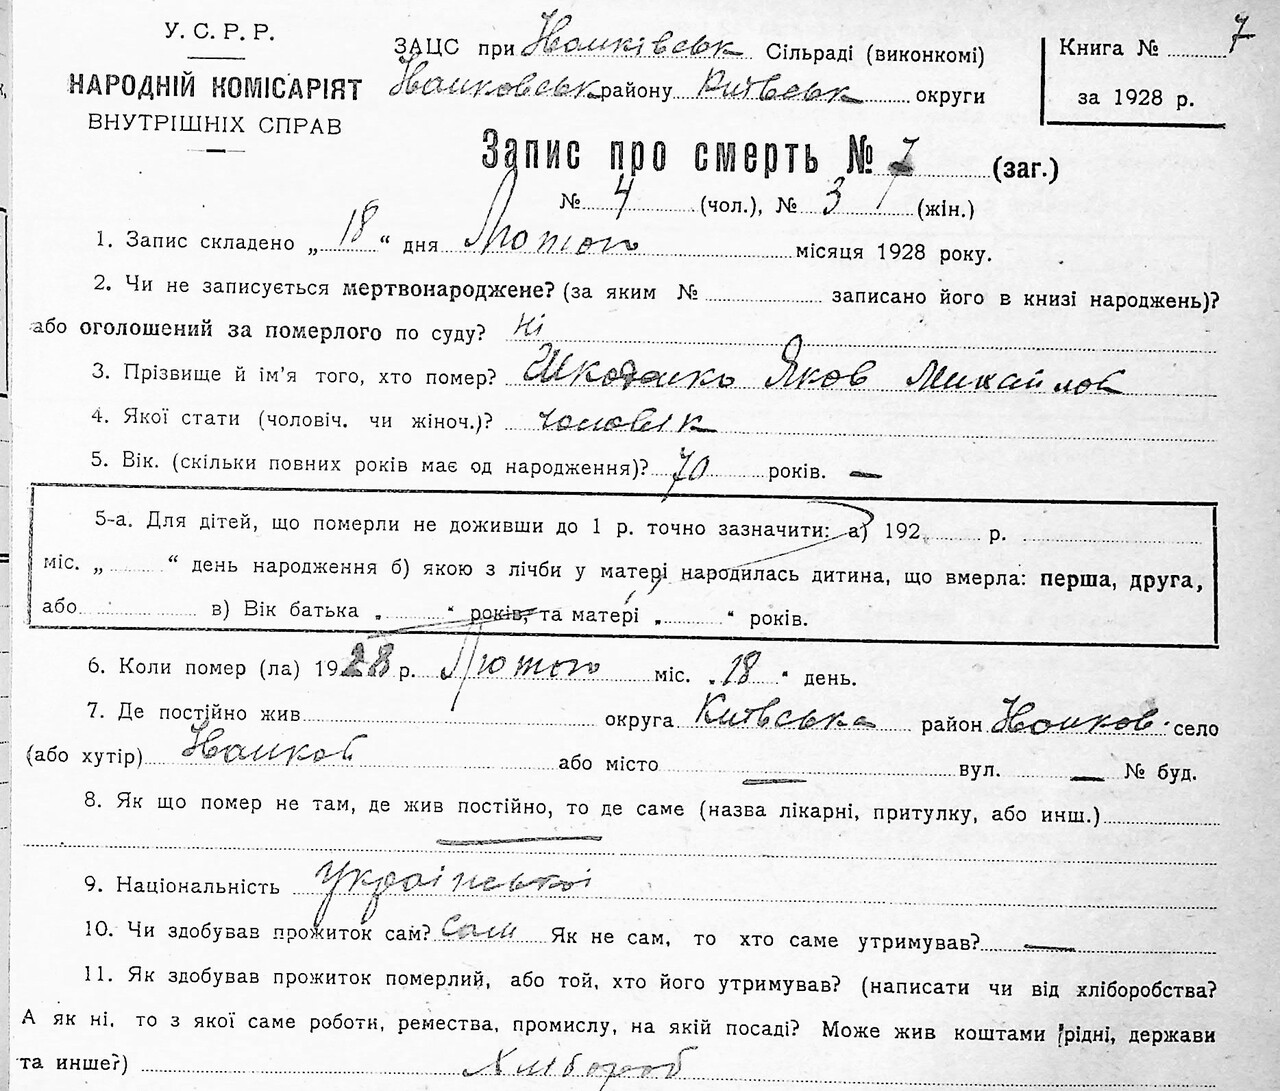 У. С. Р. Р.
НАРОДНІЙ КОМІСАРІЯТ
ВНУТРІШНІХ СПРАВ
ЗАЦС при Сільраді (виконкомі)
району Київськ округи
Книга № 7
за 1928 р.
Запис про смерть № 7 (заг.)
№ 4 (чол.), № 3 (жін.)
1. Запис складено „ 18 “ дня Лютого місяця 1928 року.
2. Чи не записується мертвонароджене? (за яким № записано його в книзі народжень)?
або оголошений за померлого по суду? Ні
3. Прізвище й ім'я того, хто помер? Яков Михайлов
4. Якої стати (чоловіч. чи жіноч.)? чоловік
5. Вік. (скільки повних років має од народження)? 70 років. —
5-а. Для дітей, що померли не доживши до 1 р. точно зазначити: а) 192 р.
міс. „ “ день народження б) якою з лічби у матері народилась дитина, що вмерла: перша, друга,
або в) Вік батька „ “ років, та матері „ “ років.
6. Коли помер (ла) 1928 р. Лютого міс. „18 “ день.
7. Де постійно жив округа Київська район село
(або хутір) або місто — вул. — № буд.
8. Як що помер не там, де жив постійно, то де саме (назва лікарні, притулку, або инш.)
—
9. Національність Української
10. Чи здобував прожиток сам? Сам Як не сам, то хто саме утримував? —
11. Як здобував прожиток померлий, або той, хто його утримував? (написати чи від хліборобства?
А як ні, то з якої саме роботи, ремества, промислу, на якій посаді? Може жив коштами рідні, держави
та инше?) Хлібороб